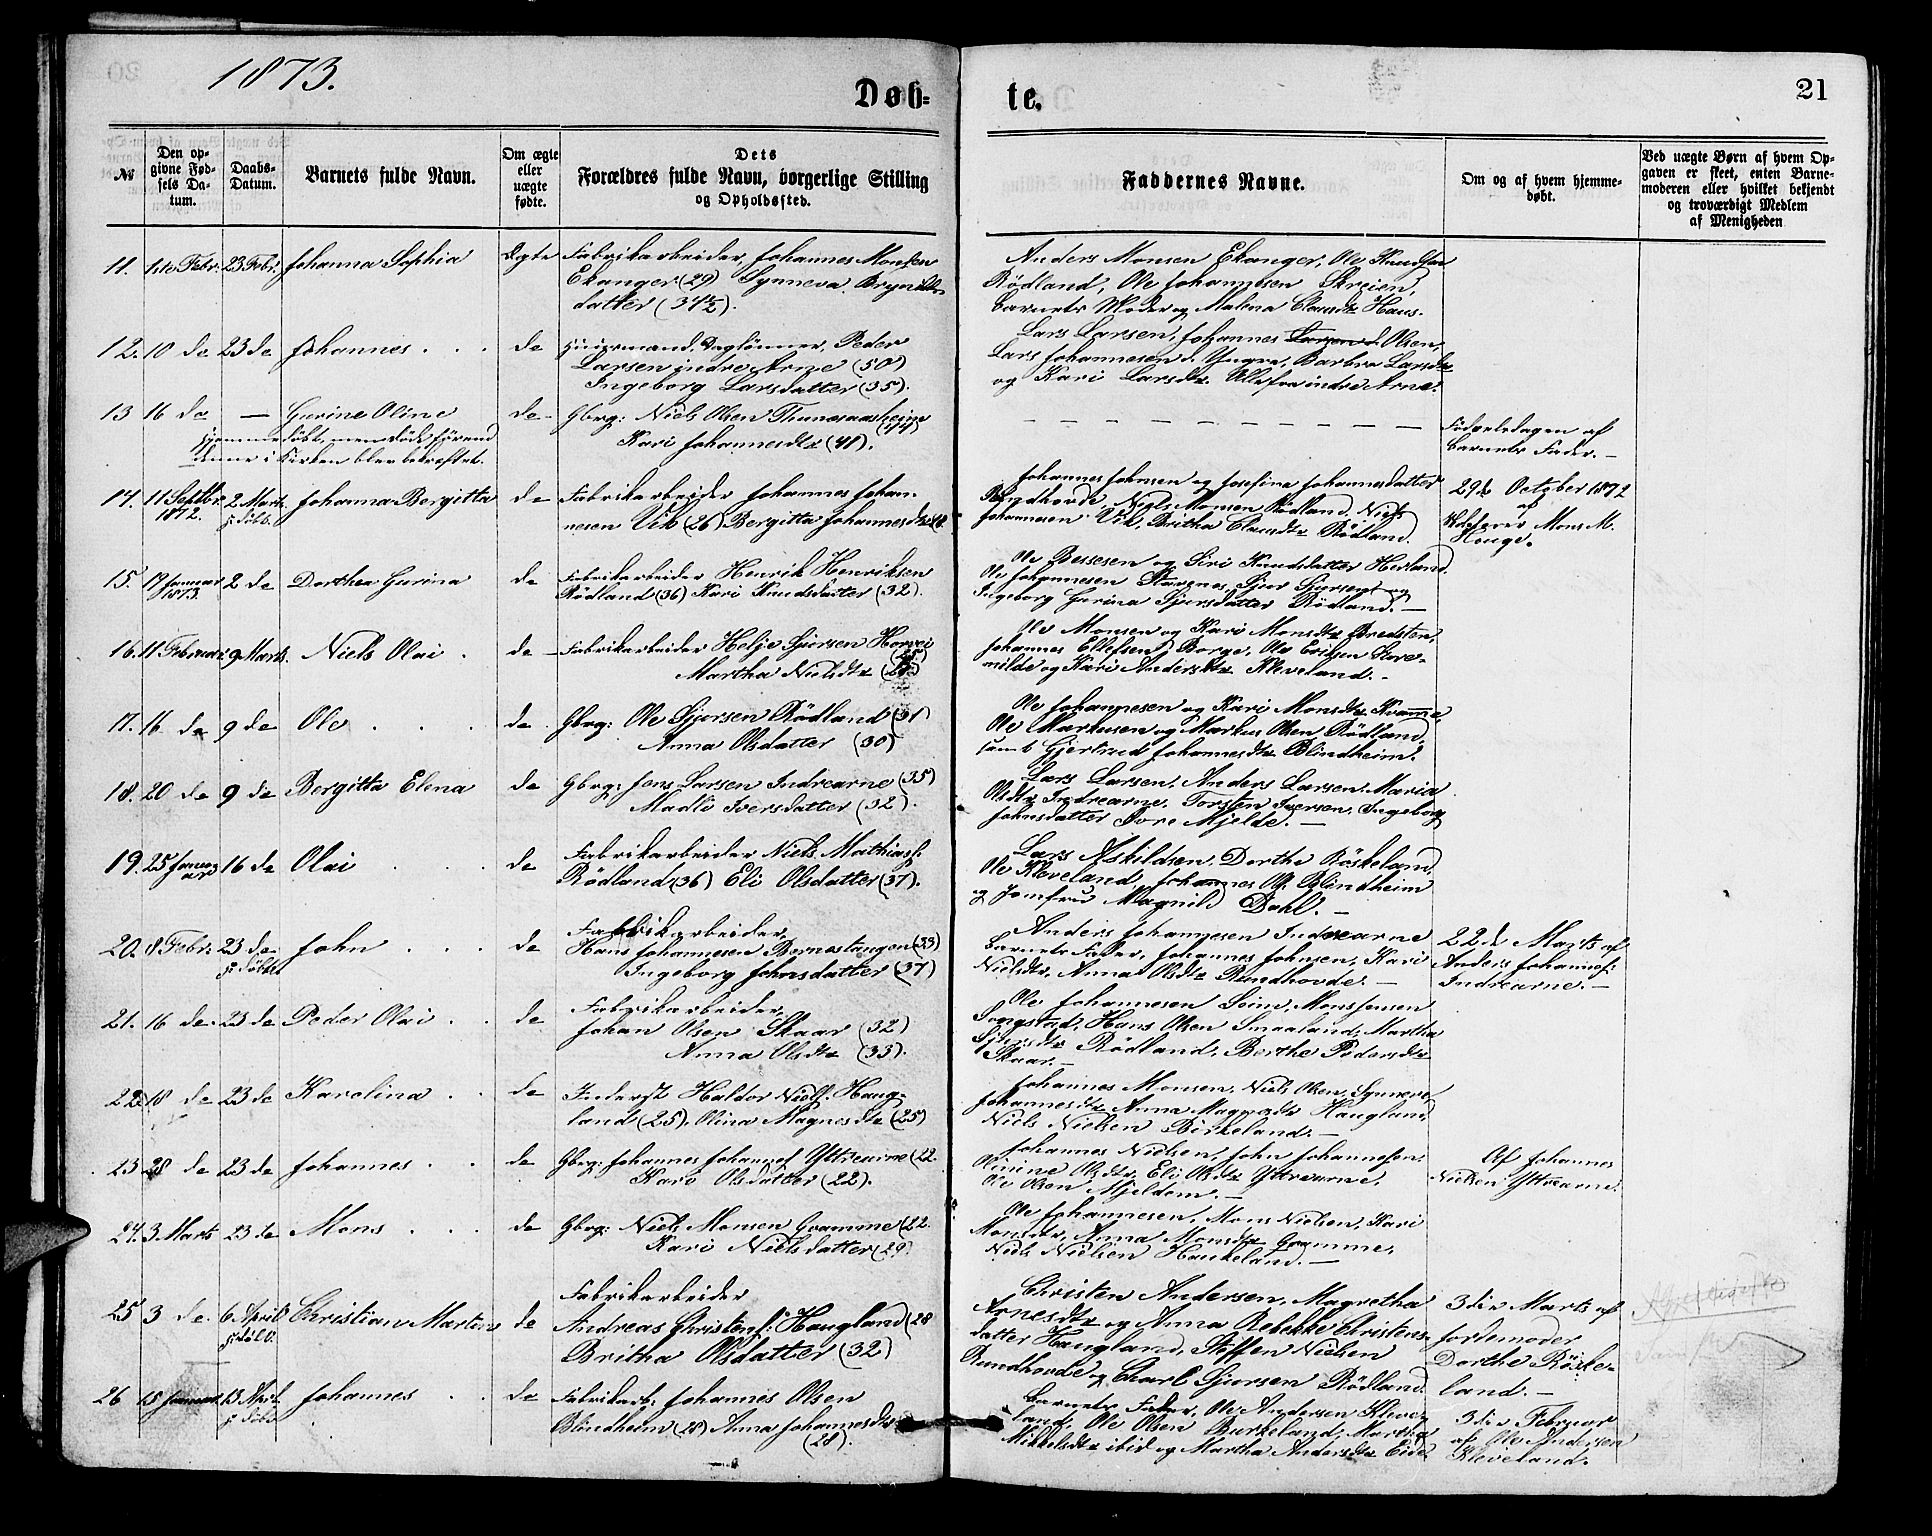 1873.
Døb-
te.
21
№
Den op-
givne Fød-
sels Da-
tum.
Daabs-
Datum.
Barnets fulde Navn.
Om ægte
eller
uægte
fødte.
Dets
Forældres fulde Navn, borgerlige Stilling
og Opholdssted.
Faddernes Navne.
Om og af hvem hjemme-
døbt.
Ved uægte Børn af hvem Op-
gaven er skeet, enten Barne-
moderen eller hvilket bekjendt
og troværdigt Medlem
af Menigheden
11. Febr. 23 Febr. Johanna Sophia Ægte Fabrikarbeider, Johannes Monsen
Ekanger (29) Synneva Brynilds-
datter (34½).
Anders Monsen Ekanger, Ole Knudsen
Rödland, Ole Johannesen Skreien,
Barnets Moder og Malena Clausdtr Haus.
12. 10 de 23 de Johannes de Huusmand, Daglönner, Peder
Larsen indre Arne (50)
Ingeborg Larsdatter (35).
Lars Larsen, Johannes Larsen Olsen,
Lars Johannesen d. Yngre, Barbra Larsdtr
og Kari Larsdtr. Alle fra indre Arne.
13 16 de — Gurine Oline de Gbrg: Niels Olsen Thunesaasheim
Kari Johannesdtr (41).
hjemmedöbt, men döde förend
denne i Kirken blev bekræftet.
Födselsdagen af
Barnets Fader. —
14. 11 Septbr 1872. 2 Marts Johanna Bergitta de Fabrikarbeider Johannes Johan-
nesen Vik (26) Bergitta Johannesdtr
Johannes Johnsen og Josefina Johannesdatter
Rundhovde, Niels Monsen Rödland, Niels
Johannesen Vik, Britha Clausdtr Rödland.
29de October 1872
af
Mons M.
Houge.
15. 17 Januar 1873. 2 de Dorthea Gurina de Fabrikarbeider Henrik Henriksen
Rödland (36) Kari Knudsdatter (32).
Ole Bessesen og Siri Knudsdatter Hedland,
Ole Johannesen Stavenes, Sjur Sjursen og
Ingeborg Gurina Sjursdatter Rödland. —
16. 11 Februar 9 Marts. Niels Olai de Fabrikarbeider Helje Sjursen Horvei
Martha Nielsdtr
Ole Monsen og Kari Monsdtr Bredsten,
Johannes Ellefsen Borge, Ole Ericsen Store-
milde og Kari Andersdtr Kleveland. —
17. 16 de 9 de Ole de Gbrg: Ole Sjursen Rödland (31)
Anna Olsdatter (30)
Ole Johannesen og Kari Monsdtr Kvamme,
Ole Markusen og Markus Olsen Rödland,
samt Gjertrud Johannesdtr Blindheim.
18. 20 de 9 de Bergitta Elena de Gbrg: Jens Larsen Indrearne (35)
Madli Iversdatter (32).
Lars Larsen, Anders Larsen, Maria
Olsdtr Indrearne, Torsten Iversen, Ingeborg
Johnsdatter Övre Mjelde. —
19. 25 Januar 16 de Olai de Fabrikarbeider Niels Mathiass.
Rödland (36) Eli Olsdatter (37).
Lars Askildsen, Dorthe Röskeland,
Ole Kleveland, Johannes Ols. Blindheim
og Jomfru Magnild Dahl. —
20. 8 Febr. 23 de John de Fabrikarbeider,
Hans Johannesen Bornestangen (33)
Ingeborg Johnsdatter (37)
Anders Johannesen Indrearne
Barnets Fader, Johannes Johnsen, Kari
Nielsdtr, Anna Olsdtr Rundhovde. —
22de Marts af
Anders Johannes:
Indrearne. —
21. 16 de. 23 de Peder Olai de Fabrikarbeider,
Johan Olsen Skaar (32)
Anna Olsdtr (33).
Ole Johannesen Seim, Mons Jensen
Songstad, Hans Olsen Smaaland, Martha
Sjursdtr Rödland, Berthe Pedersdtr
Skaar. —
22 18 de 23 de Karolina de Inderst Haldor Niels. Haug-
land (25), Olina Magnesdtr (25)
Johannes Monsen, Niels Olsen, Synneve
Johannesdtr, Anna Magnesdtr Haugland,
Niels Nielsen Birkeland. —
23 28 de 23 de Johannes de Gbrg: Johannes Johannes. Yttrearne (22.
Kari Olsdatter (22).
Johannes Nielsen, John Johannesen,
Olivine Olsdtr, Eli Olsdtr Yttrearne,
Ole Olsen Mjeldem. —
Af Johannes
Nielsen Yttrearne.
24. 3. Marts 23 de Mons de Gbrg: Niels Monsen Gvamme (22.
Kari Nielsdatter (29)
Ole Johannesen, Mons Nielsen, Kari
Monsdtr, Anna Monsdtr Gvamme,
Niels Nielsen Haukeland. —
25 3 de. 6 April Christian Martin de Fabrikarbeider
Andreas Christens. Haugland (28
Britha Olsdatter (32)
Christen Andersen, Magretha
Arnesdtr og Anna Rebekke Christens-
datter Haugland, Steffen Nielsen
Rundhovde og Charl Sjursen Rödland
3die Marts af
Jordemoder
Dorthe Röske-
land. —
26 15 Januar 13 April Johannes de Fabrikarb: Johannes Olsen
Blindheim (28) Anna Johannesdtr
(28).
Barnets Fader, Ole Andersen Kleve-
land, Ole Olsen Burkeland, Martha
Mikkelsdtr ibid og Martha Andersdtr Eide
3die Februar
af Ole Andersen
Kleveland.